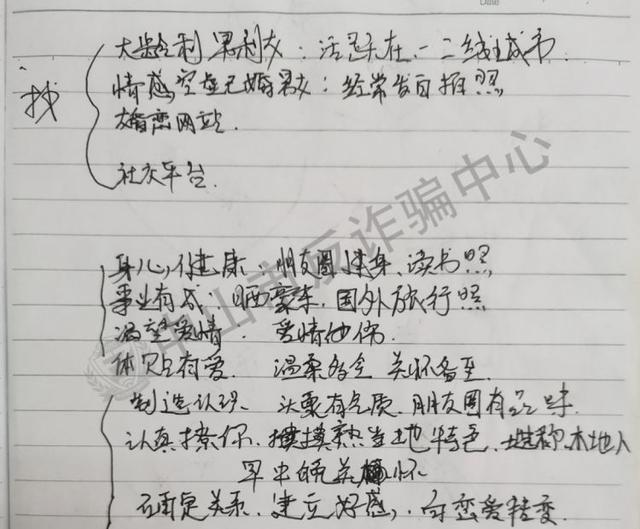 Date
找
大龄剩男剩女：活跃在一二线城市
情感空虚已婚男女：经常发自拍照
婚恋网站.
社交平台.
身心健康：朋友圈健身、读书照
事业有成：晒豪车.国外旅行照
渴望爱情. 爱情
体贴有爱. 温柔 关怀备至.
制造认识、头像有气质.朋友圈有品味.
认真撩你.摸熟当地特色. 本地人
早中晚关怀
确定关系.建立好感，向恋爱转变.
中山市反诈骗中心